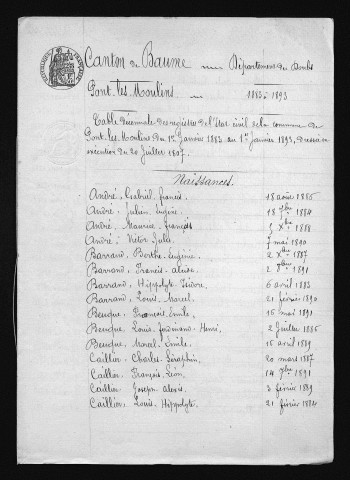 Canton de Baume Département du Doubs
Pont-les-Moulins. 1883-1893
Table décennale des registres de l'état civil de la commune de
Pont-les-Moulins du 1er Janvier 1883 au 1er Janvier 1893, dressée en
exécution du 20 Juillet 1807.
Naissances.
André, Gabriel Francis. 18 août 1886
André, Julien Eugène. 18 7bre 1884
André, Maurice François 5 Xbre 1888
André, Victor Jules. 7 mai 1890
Barrand, Berthe Eugénie. 2 Xbre 1887
Barrand, Francis 2 1891
Barrand, Hippolyte Isidore. 6 avril 1883
Barrand, Louis Marcel. 21 février 1890
Beuque, François Emile. 16 mai 1891
Beuque, Louis Ferdinand Henri, 2 Juillet 1886
Beuque, Marcel Emile. 15 avril 1889
Caillier, Charles Séraphin. 20 mars 1887
Caillier, François Léon. 14 9bre 1891
Caillier, Joseph Alexis. 3 février 1889
Caillier, Louis Hippolyte. 21 février 1884